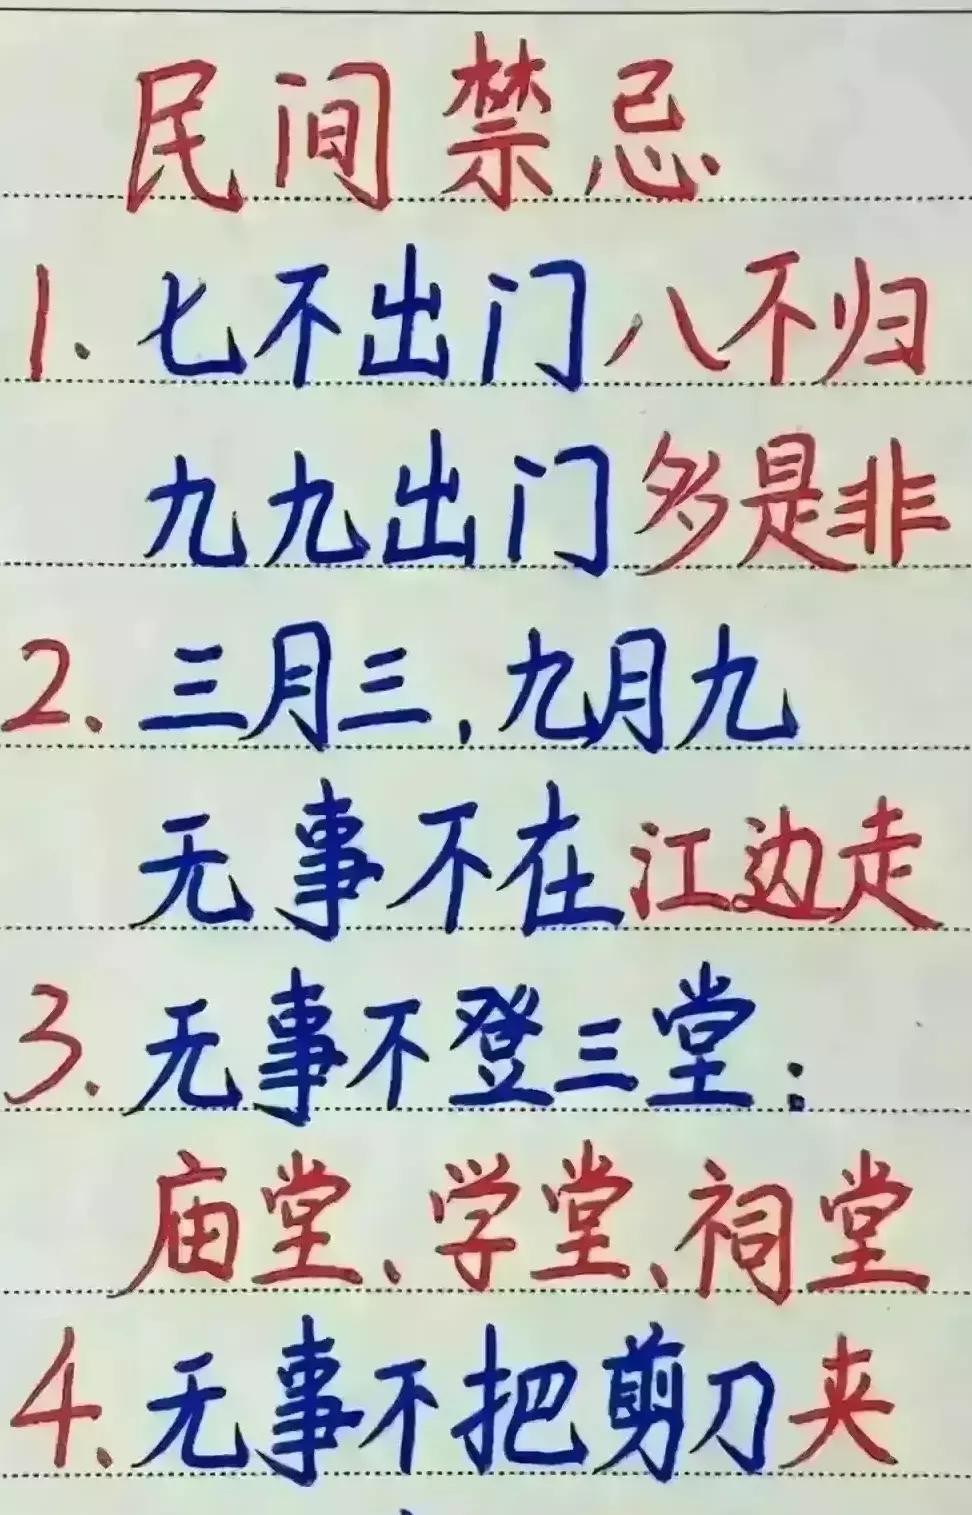 民间禁忌
1.七不出门八不归
九九出门多是非
2.三月三,九月九
无事不在江边走
3.无事不登三堂:
庙堂、学堂、祠堂
4.无事不把剪刀夹